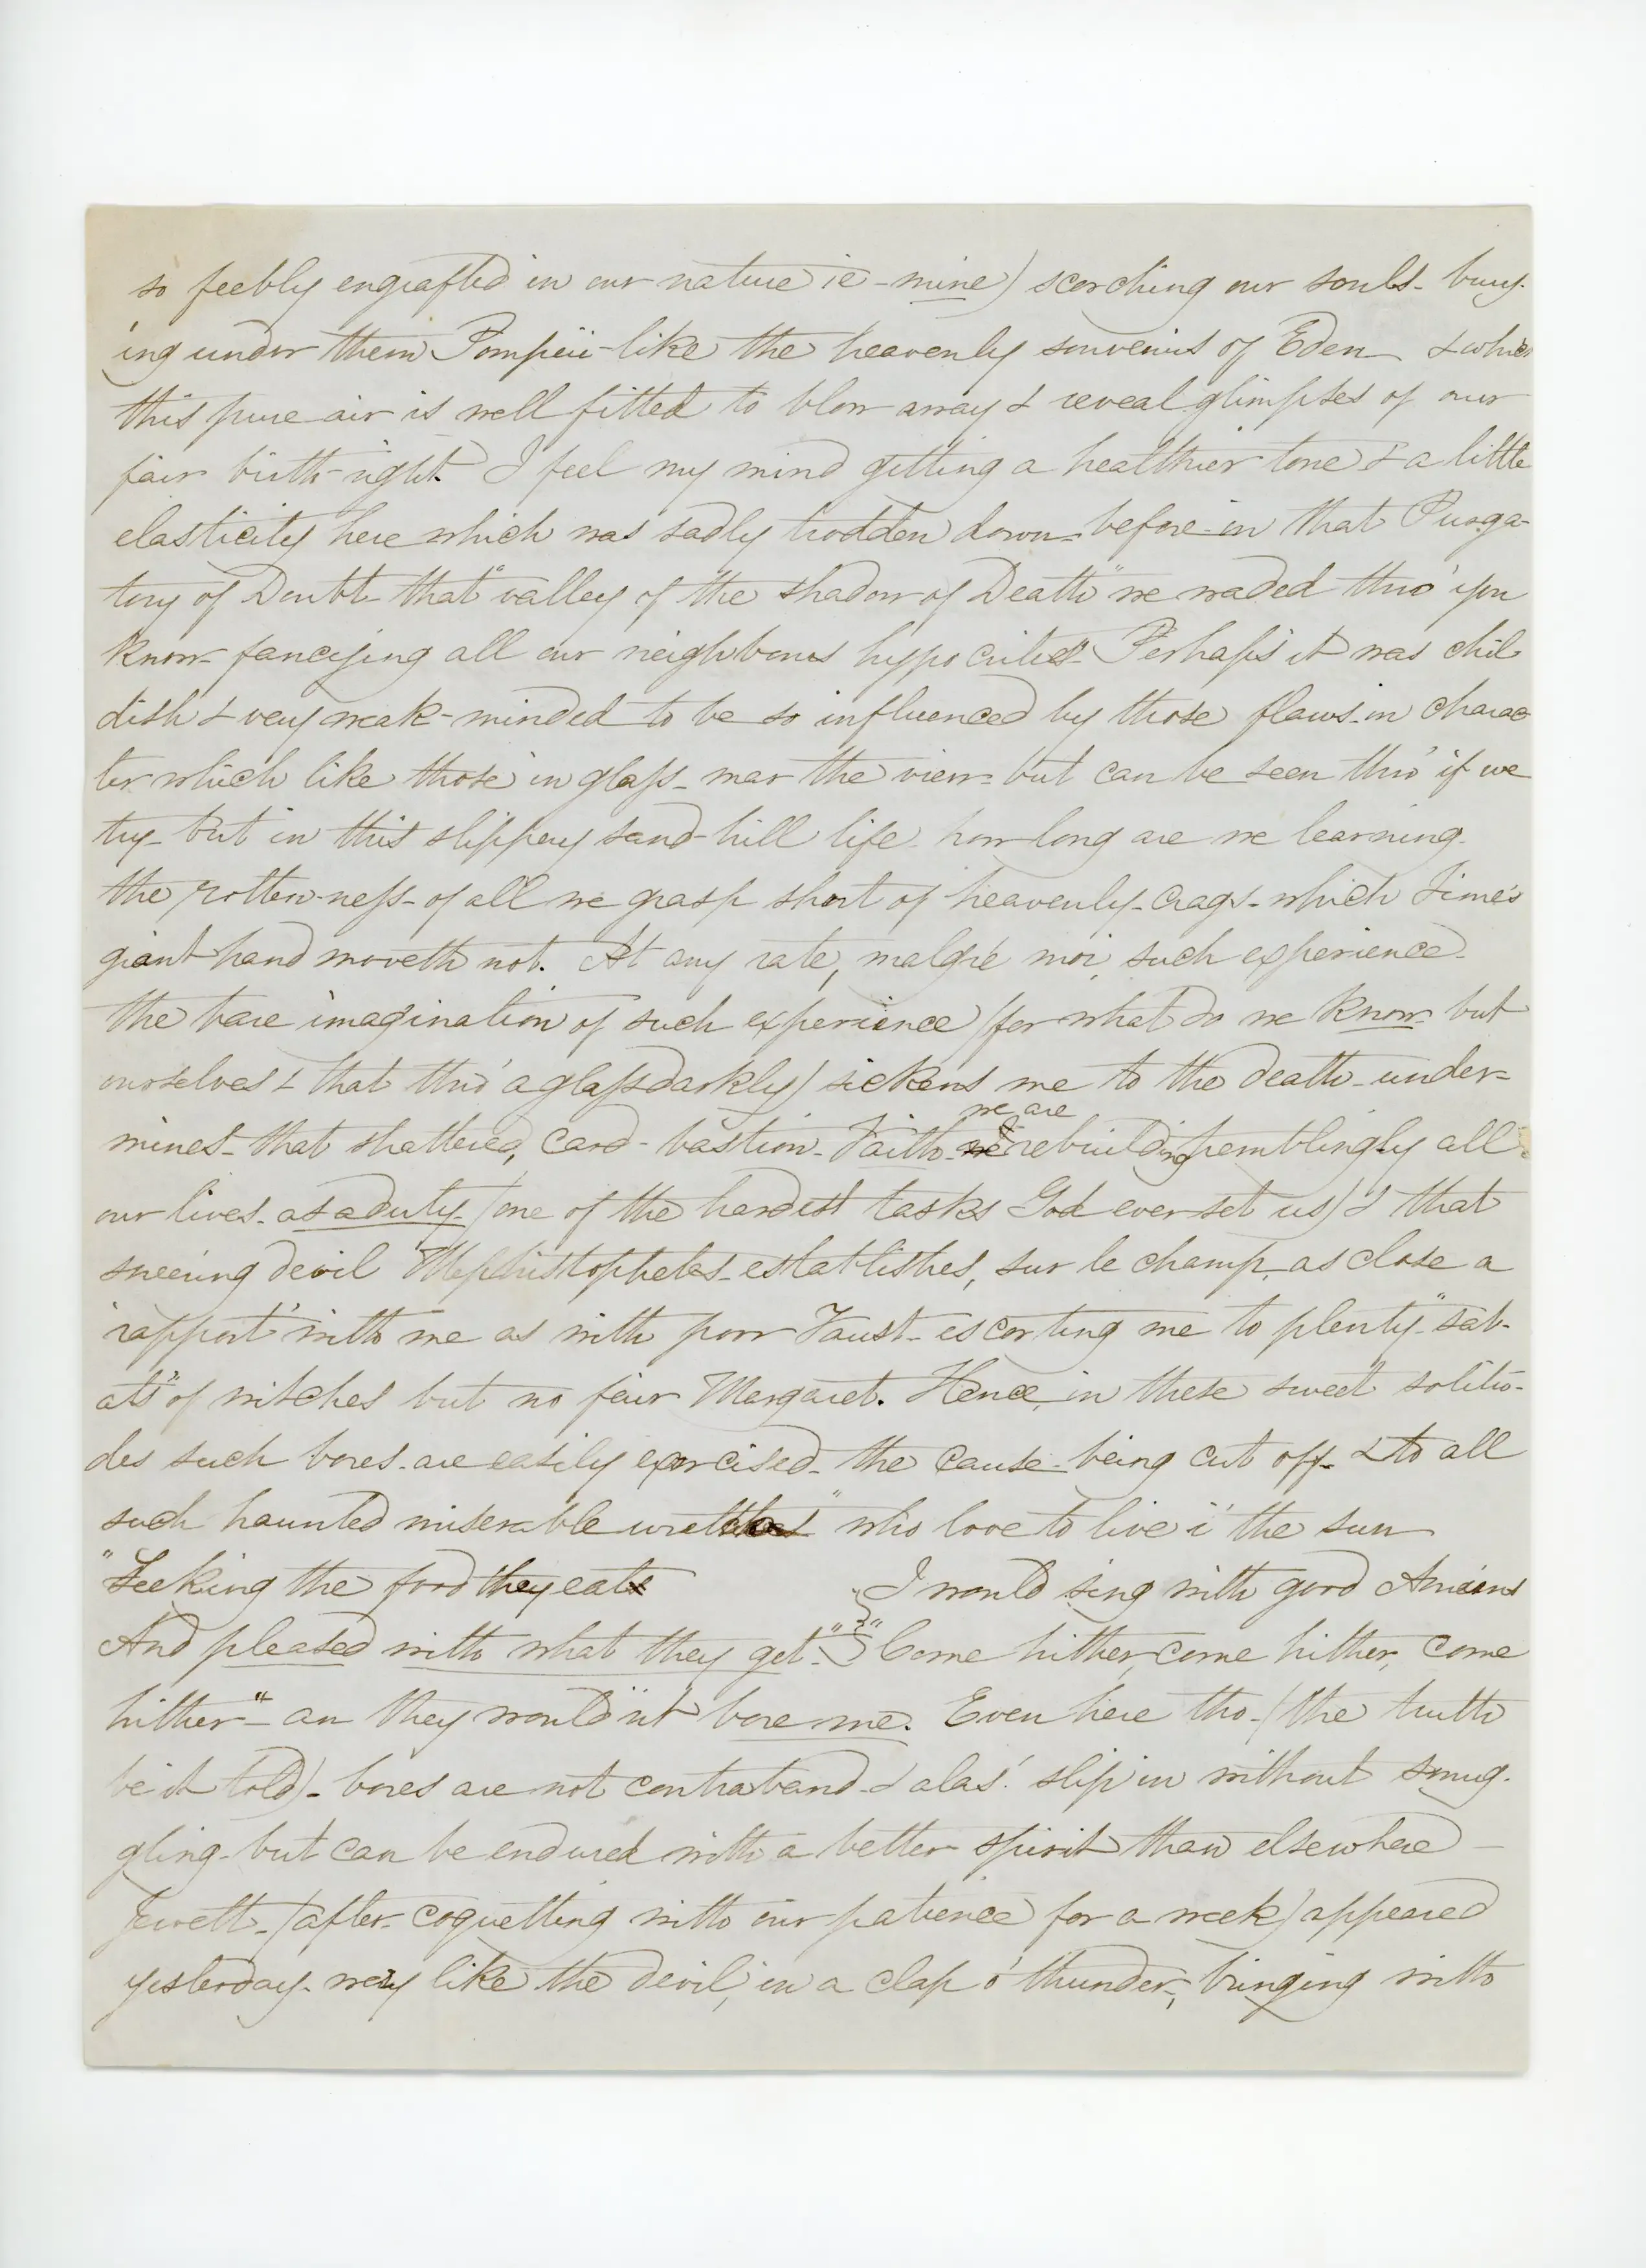 so feebly engrafted in our nature ie - mine) scorching our souls - bury-
ing under them Pompeii-like the heavenly souvenirs of Eden & which
this pure air is well fitted to blow away & reveal glimpses of our
fair birth-right. I feel my mind getting a healthier tone & a little
elasticity here which was sadly trodden down - before in that Purga-
tory of Doubt - that "valley of the shadow of Death" we waded thro' you
know - fancying all our neighbours hypocrites - Perhaps it was chil
dish & very weak-minded to be so influenced by those flaws in charac
ter which like those in glass - mar the view - but can be seen thro' if we
try - But in this slippery sand-hill life - how long are we learning
the rotten-ness - of all we grasp short of heavenly - crags - which Time's
giant hand moveth not. At any rate, malgré moi, such experience -
the bare imagination of such experience (for what do we know but
ourselves & that thro' a glass darkly) sickens me to the death - under-
mines - that shattered, card - bastion - Faith - we are rebuilding tremblingly all
our lives - as a duty (one of the hardest tasks God ever set us) & that
sneering devil Mephistopheles - establishes, sur le champ, as close a
'rapport' with me as with poor Faust - escorting me to plenty "sab-
ats" of witches but no fair Margaret. Hence, in these sweet solitu-
des such bores - are easily exorcised - the cause - being cut off - & to all
such haunted miserable wretches "who love to live i' the sun
"Seeking the food they eat
And pleased with what they get." I would sing with good Amiens
"Come hither, come hither, come
hither" - an they would'nt bore me. Even here tho - (the truth
be it told) - bores are not contraband - & alas! slip in without smug-
gling - but can be endured with a better spirit than elsewhere -
Jewett - (after coquetting with our patience for a week) appeared
yesterday - very like the devil, in a clap o' thunder, bringing with